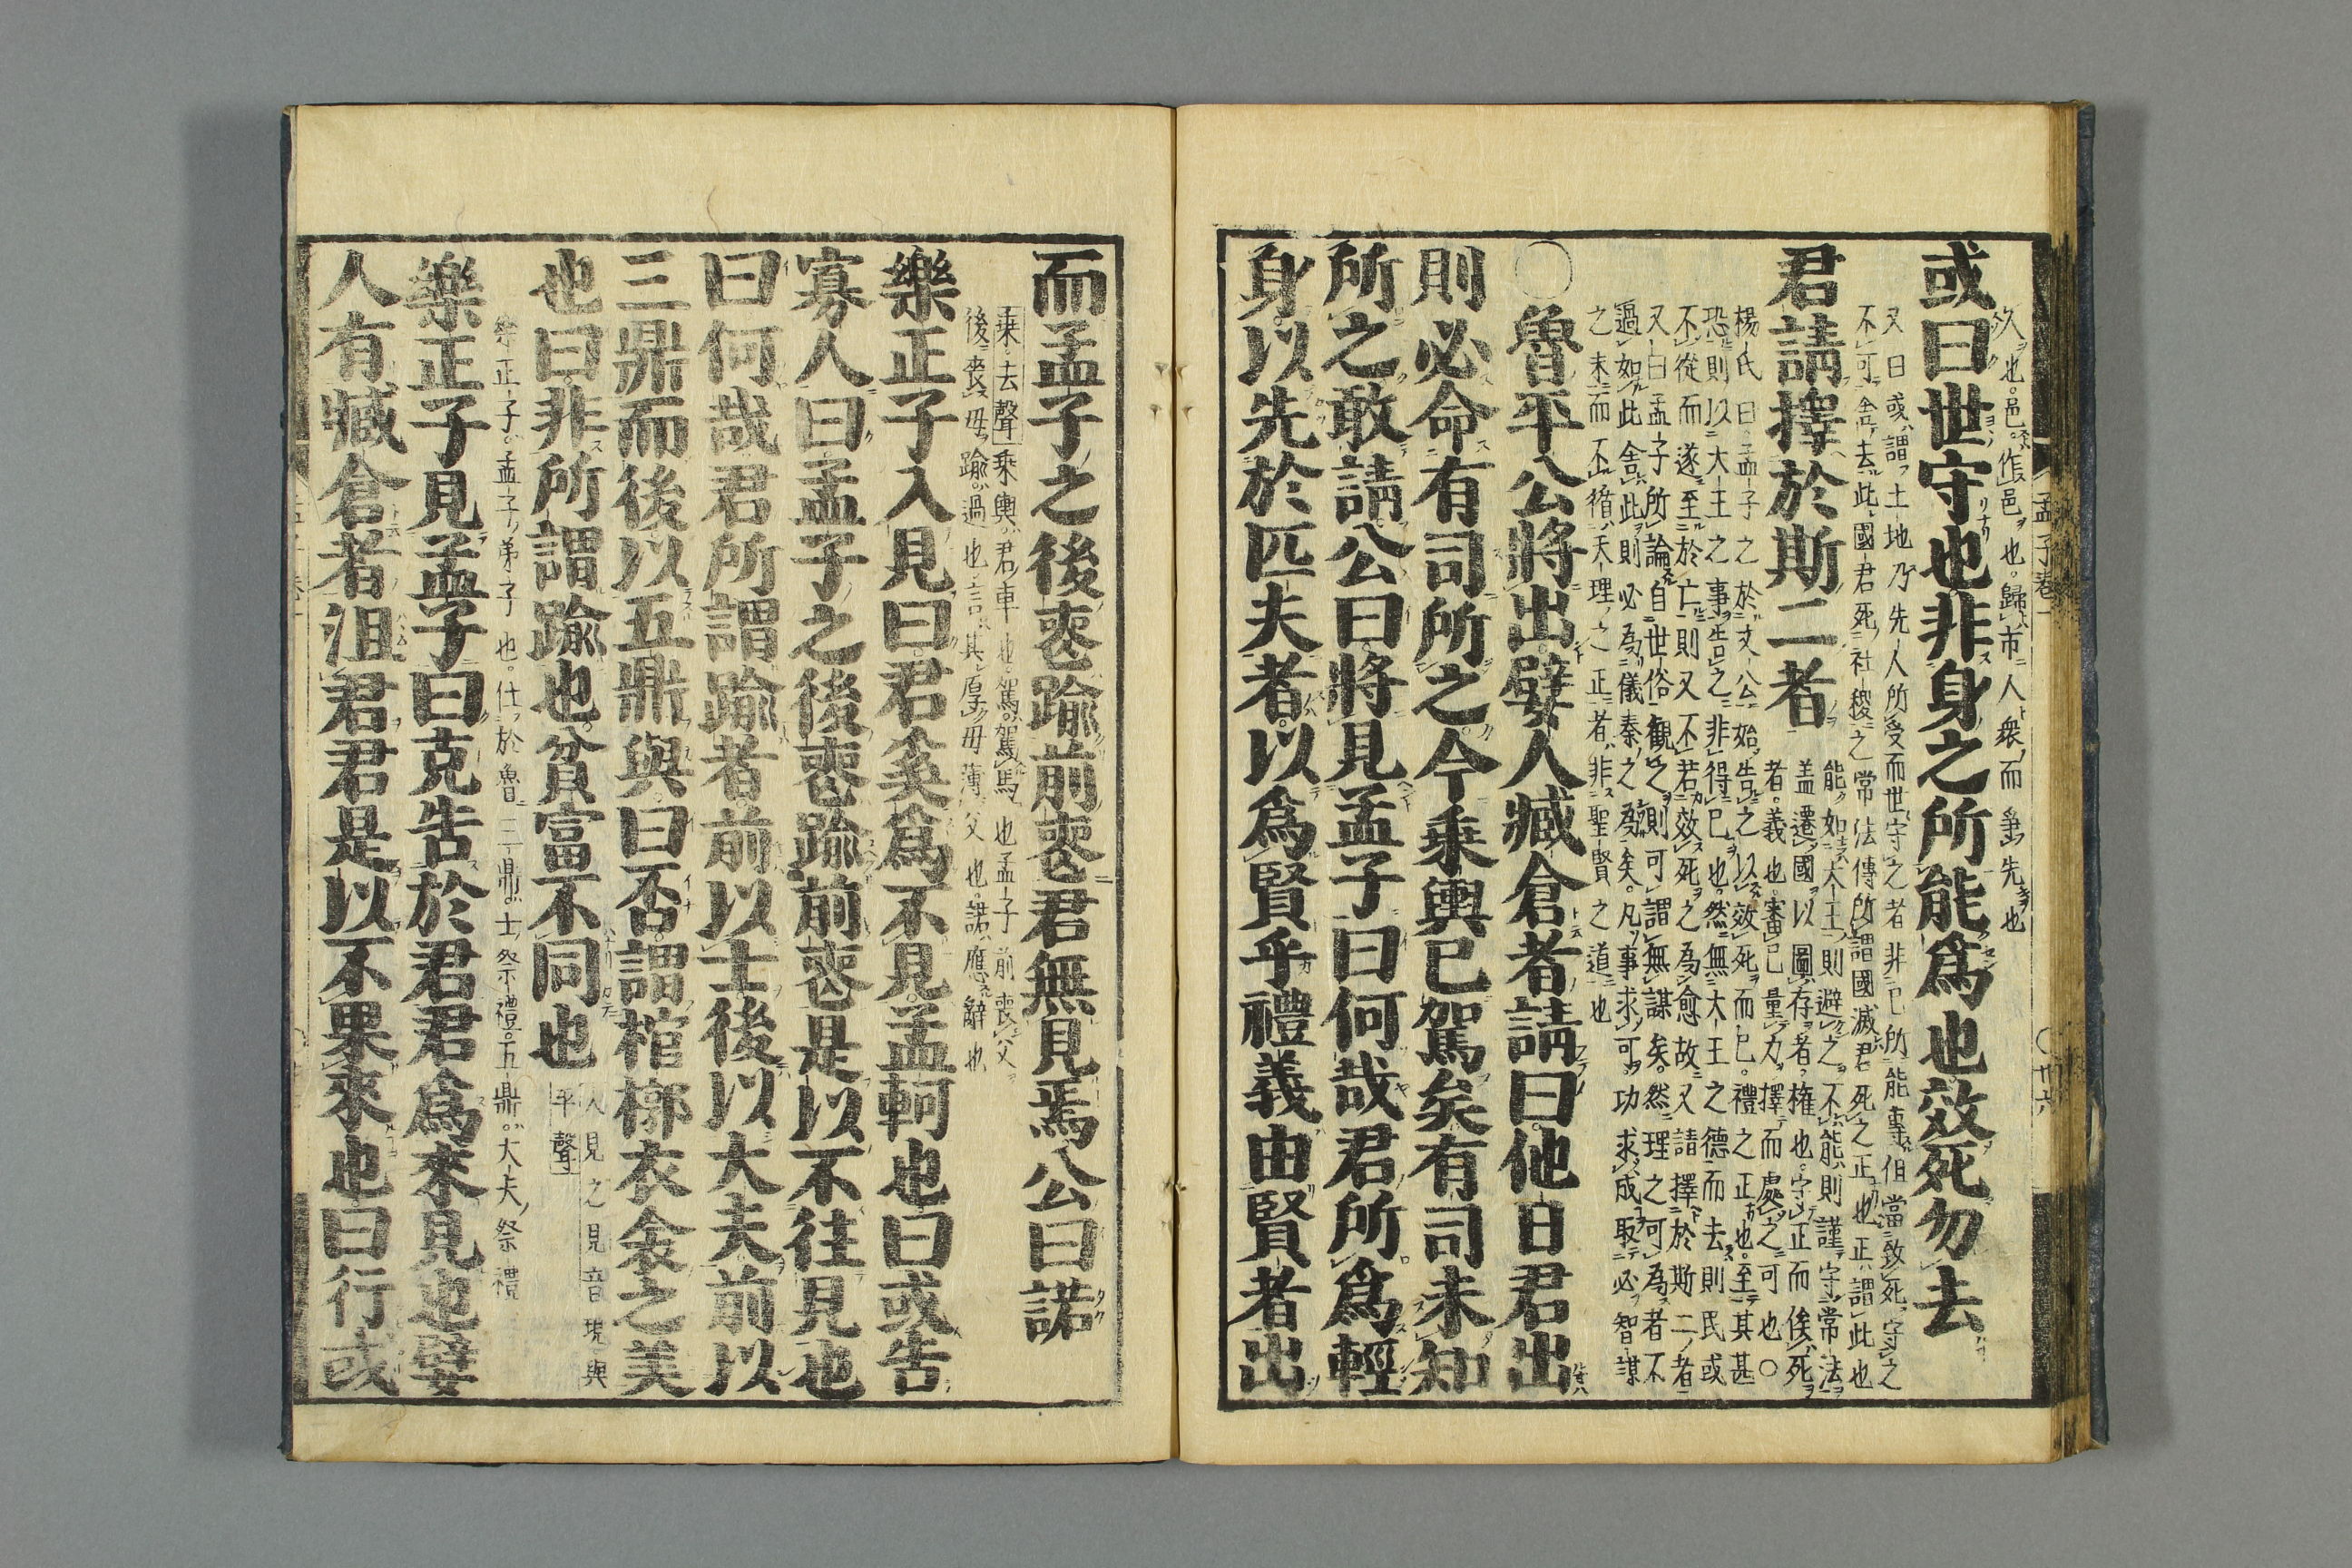 孟子卷一
○廿六
久也邑作邑也歸市人衆而爭先也
或曰世守也非身之所能爲也效死勿去
又曰或謂土地乃先人所受而世守之者非已所能專但當致死守之
不可舍去此國君死社稷之常法傳所謂國滅君死之正也正謂此也
君請擇於斯二者
能如大王則避之不能則謹守常法
盖遷國以圖存者權也守正而俟死
者義也審已量力擇而處之可也○
楊氏曰孟子之於文公始告之以效死而已禮之正也至其甚
恐則以大王之事告之非得已也然無大王之德而去則民或
不從而遂至於亡則又不若效死之為愈故又請擇於斯二者
又曰孟子所論自世俗觀之則可謂無謀矣然理之可為者不
過如此舍此則必為儀秦之為矣凡事求可功求成取必智謀
之末而不循天理之正者非聖賢之道也
○魯平公將出嬖人臧倉者請曰他日君出
則必命有司所之今乗輿已駕矣有司未知
所之敢請公曰將見孟子曰何哉君所爲輕
身以先於匹夫者以爲賢乎禮義由賢者出
而孟子之後喪踰前喪君無見焉公曰諾
乗去聲乗輿君車也駕駕馬也孟子前喪父
後喪母踰過也言其厚母薄父也諾應辭也
樂正子入見曰君奚爲不見孟軻也曰或告
寡人曰孟子之後喪踰前喪是以不往見也
曰何哉君所謂踰者前以士後以大夫前以
三鼎而後以五鼎與曰否謂棺槨衣衾之美
也曰非所謂踰也貧富不同也
入見之見音現與
平聲
樂正子孟子弟子也仕於魯三鼎士祭禮五鼎大夫祭禮
樂正子見孟子曰克告於君君爲來見也嬖
人有臧倉者沮君君是以不果來也曰行或